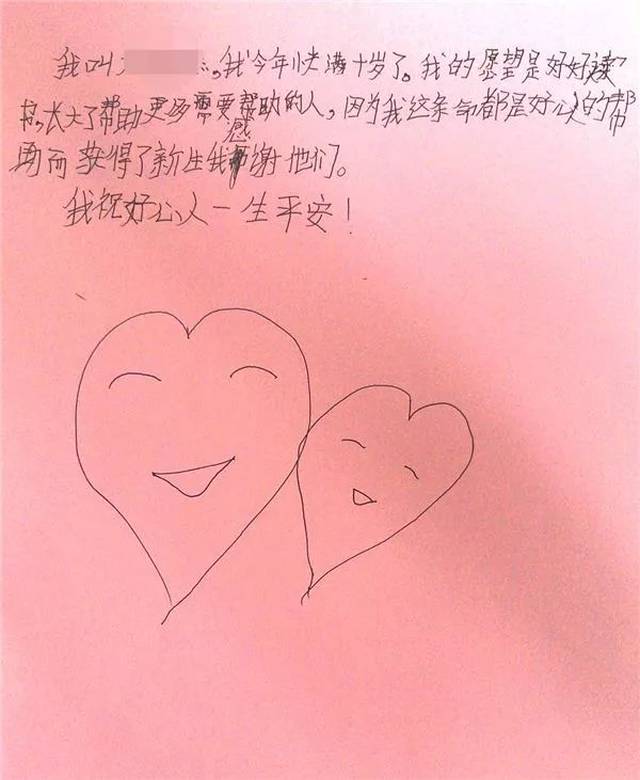 我叫,我今年快满十岁了。我的愿望是好好读
书,长大了帮助更多需要帮助的人,因为我这条命都是好心人的帮
助而获得了新生我感谢他们。
我祝好心人一生平安!